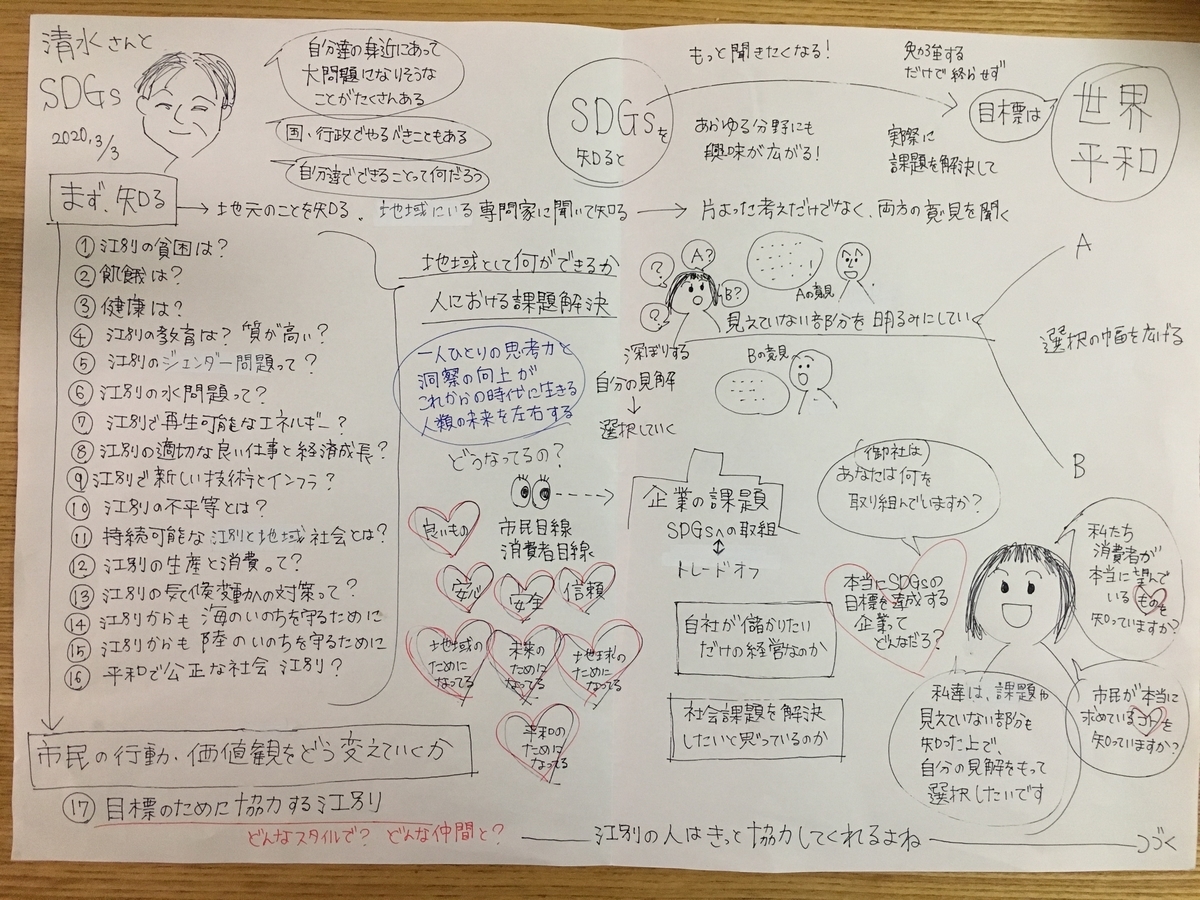 清水さんと
SDGs
2020.3/3
自分達の身近にあって
大問題になりそうな
ことがたくさんある
国・行政でやるべきこともある
自分達でできることって何だろう
SDGsを
知ると
もっと聞きたくなる!
あらゆる分野にも
興味が広がる!
勉強する
だけで終らせず
実際に
課題を解決して
目標は
世界
平和
まず、知る
地元のことを知る、地域にいる専門家に聞いて知る
片よった考えだけでなく、両方の意見を聞く
① 江別の貧困は?
② 飢餓は?
③ 健康は?
④ 江別の教育は? 質が高い?
⑤ 江別のジェンダー問題って?
⑥ 江別の水問題って?
⑦ 江別で再生可能なエネルギー?
⑧ 江別の適切な良い仕事と経済成長?
⑨ 江別で新しい技術とインフラ?
⑩ 江別の不平等とは?
⑪ 持続可能な江別と地域社会とは?
⑫ 江別の生産と消費って?
⑬ 江別の気候変動の対策って?
⑭ 江別からも 海のいのちを守るために
⑮ 江別からも 陸のいのちを守るために
⑯ 平和で公正な社会 江別?
市民の行動、価値観をどう変えていくか
⑰ 目標のために協力する江別
どんなスタイルで? どんな仲間と?
江別の人はきっと協力してくれるよね
つづく
地域として何ができるか
人における課題解決
一人ひとりの思考力と
洞察の向上が
これからの時代に生きる
人類の未来を左右する
どうなってるの?
市民目線
消費者目線
良いもの
安心
安全
信頼
地域の
ために
なってる
未来の
ために
なってる
地球の
ために
なってる
平和の
ために
なってる
?
A?
?
B?
?
Aの意見
見えていない部分を明るみにしていく
深ぼりする
自分の見解
↓
選択していく
Bの意見
A
選択の巾を広げる
B
企業の課題
SDGsへの取組
↕
トレードオフ
自社が儲かりたい
だけの経営なのか
社会課題を解決
したいと思っているのか
(御社は)
あなたは何を
取り組んでいますか?
本当にSDGsの
目標を達成する
企業って
どんなだろ?
私たち
消費者が
本当に望んで
いるものを
知っていますか?
市民が本当に
求めているコトを
知っていますか?
私達は、課題や
見えていない部分も
知った上で、
自分の見解をもって
選択したいです